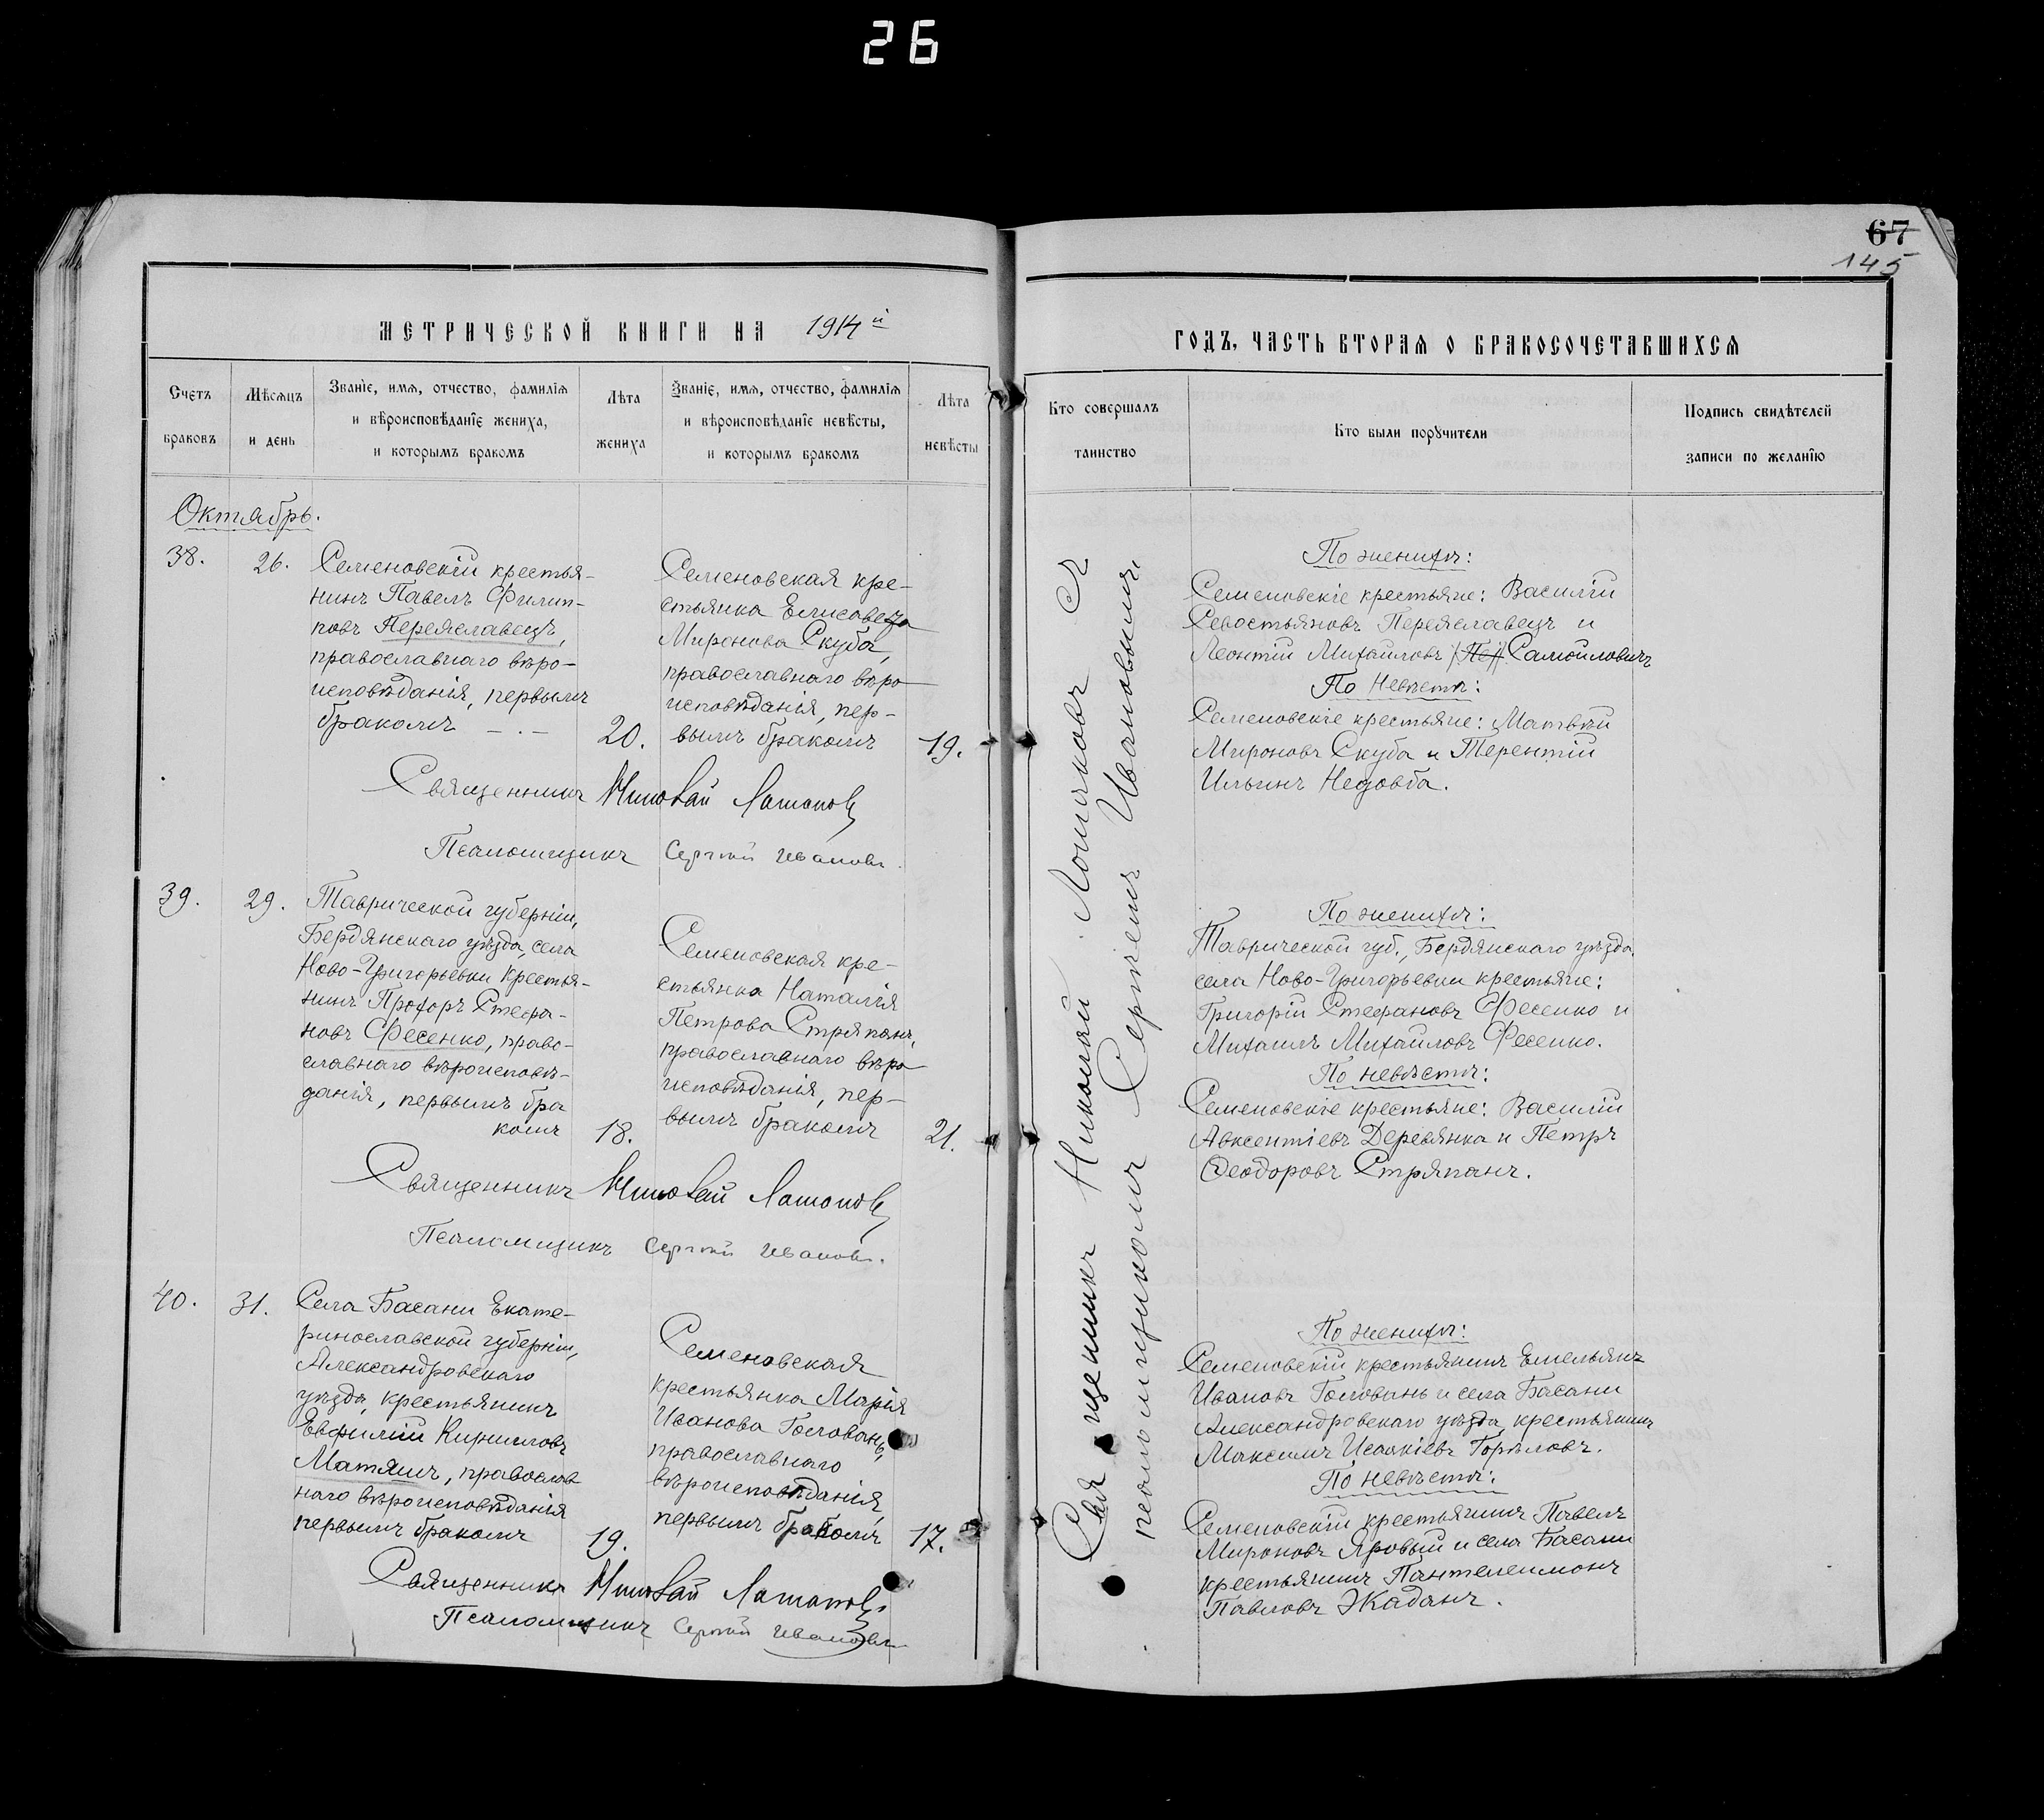 26
67
145
МЕТРИЧЕСКОЙ КНИГИ НА 1914й
ГОДЪ, ЧАСТЬ ВТОРАЯ О БРАКОСОЧЕТАВШИХСЯ
Счетъ браковъ
Мѣсяцъ и день
Званіе, имя, отчество, фамилія
и вѣроисповѣданіе жениха,
и которымъ бракомъ
Лѣта жениха
Званіе, имя, отчество, фамилія
и вѣроисповѣданіе невѣсты,
и которымъ бракомъ
Лѣта невѣсты
Кто совершалъ таинство
Кто были поручители
Подпись свидѣтелей
записи по желанію
Октябрь.
38.
26.
Семеновскій крестья-
нинъ Павелъ Филип-
повъ Переяславецъ,
православнаго вѣро-
исповѣданія, первымъ
бракомъ — . —
20.
Семеновская кре-
стьянка Елисавета
Миронова Скуба,
православнаго вѣро
исповѣданія, пер-
вымъ бракомъ
19.
Священникъ Николай
Псаломщикъ Сергій Ивановъ.
39.
29.
Таврической губерніи,
Бердянскаго уѣзда, села
Ново-Григорьевки крестья-
нинъ Прохоръ Стефа-
новъ Фесенко, право-
славнаго вѣроисповѣ-
данія, первымъ бра
комъ
18.
Семеновская кре-
стьянка Наталія
Петрова Стряпанъ,
православнаго вѣро
исповѣданія, пер-
вымъ бракомъ
21.
Священникъ Николай
Псаломщикъ Сергій Ивановъ.
40.
31.
Села Басани Екате-
ринославской губерніи,
Александровскаго
уѣзда, крестьянинъ
Евфилій Кирилловъ
Матяшъ, православ
наго вѣроисповѣданія
первымъ бракомъ
19.
Семеновская
крестьянка Марія
Иванова Головань,
православнаго
вѣроисповѣданія,
первымъ бракомъ
17.
Священникъ Николай
Псаломщикъ Сергій Ивановъ
Священникъ Николай съ
псаломщикомъ Сергіемъ Ивановымъ.
По женихѣ:
Семеновскіе крестьяне: Василій
Севостьяновъ Переяславецъ и
Леонтій Михайловъ (Пе) Самойловичъ
По невѣстѣ:
Семеновскіе крестьяне: Матвѣй
Мироновъ Скуба и Терентій
Ильинъ Недовба.
По женихѣ:
Таврической губ., Бердянскаго уѣзда,
села Ново-Григорьевки крестьяне:
Григорій Стефановъ Фесенко и
Михаилъ Михайловъ Фесенко.
По невѣстѣ:
Семеновскіе крестьяне: Василій
Авксентіевъ Деревянка и Петръ
Ѳеодоровъ Стряпанъ.
По женихѣ:
Семеновскій крестьянинъ Емельянъ
Ивановъ Головань и села Басани
Александровскаго уѣзда, крестьянинъ
Максимъ Исаакіевъ Горѣловъ.
По невѣстѣ:
Семеновскій крестьянинъ Павелъ
Мироновъ Яровый и села Басани
крестьянинъ Пантелеимонъ
Павловъ Жаданъ.